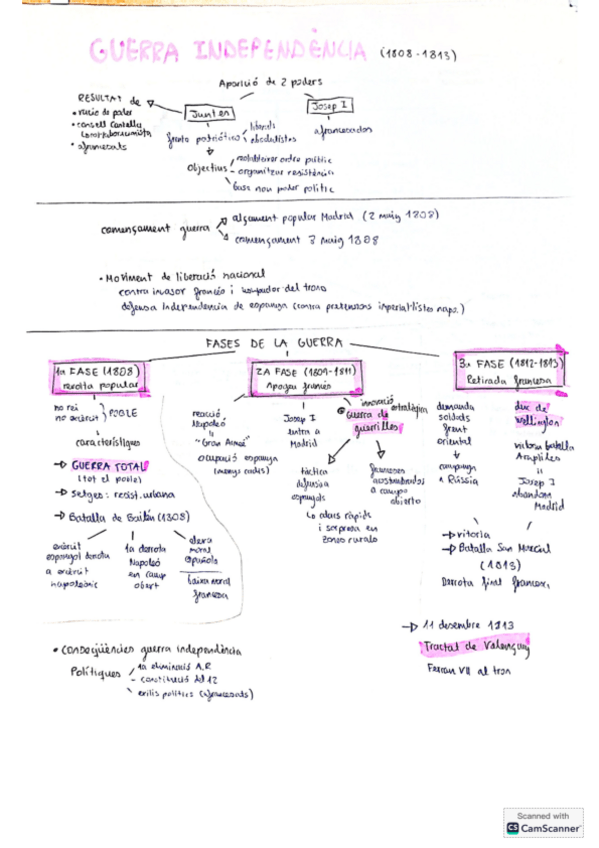 GUERRA INDEPENDÈNCIA (1808-1813)
Aparició de 2 poders
RESULTAT de
• vucio de poder
• consell Castella
• afrancesats
Juntes
Josep I
fronto patriótico
liberals
absolutistas
afrancesados
objectius
restablecer ordre públic
organitzar resistència
buss nou poder polític
començament guerra
alçament popular Madrid (2 maig 1808)
començament 3 maig 1808
• Moviment de liberació nacional
contra invasor francés i usurpador del trono
defensa Independencia de espanya (contra pretensions imperial·listes napo.)
FASES DE LA GUERRA
1a FASE (1808)
revolta popular
2A FASE (1809-1811)
Apogeu francés
3a FASE (1812-1813)
Retirada francesa
no rei
no exèrcit
POBLE
característiques
→ GUERRA TOTAL
(tot el poble)
→ setges: resist. urbana
→ Batalla de Bailén (1808)
exèrcit
espanyol derrota
a exèrcit
napoleònic
1a derrota
Napoleó
en camp
obert
eleva
moral
española
baixa moral
francesa
reacció
Napoleó
"Gran Armeé"
ocupació espanya
(menys cadis)
Josep I
entra a
Madrid
innovació
estratégica
Guerra de
guerrilles
tàctica
defensiva
espanyols
franceses
acostumbrados
a campo
abierto
↳ atacs ràpids
i sorpresa en
zonas rurals
demanda
soldats
front
oriental
campanya
a Rússia
duc de
Wellington
victoria batalla
Arapiles
Josep I
abandona
Madrid
→ vitoria
→ Batalla San Marcial
(1813)
Derrota final francesa
→ 11 desembre 1813
Tractat de Valençay
Ferran VII al tron
• conseqüències guerra independència
Polítiques
1a eliminació A.R
constitució del 12
exilis politics (afrancesats)
Scanned with
CS CamScanner